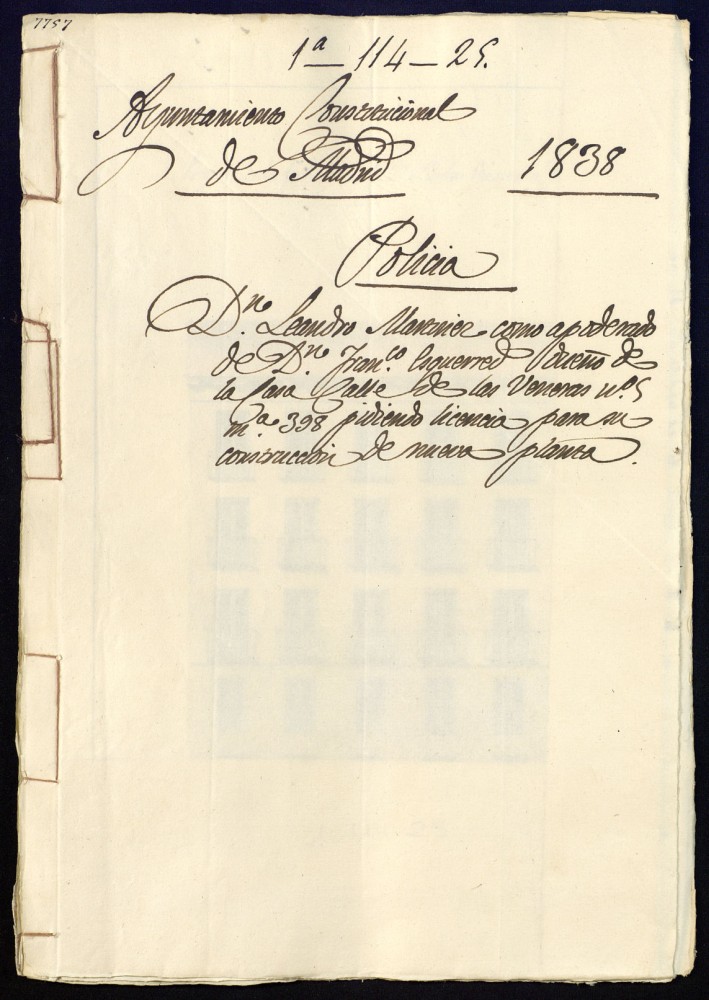 7757
1ª – 114 – 25.
Ayuntamiento Constitucional
de Madrid 1838
Policia
Dn. Leandro Martinez como apoderado
de Dn. Franco. Esquerred dueño de
la Casa Calle de las Veneras nº. 5
mª. 398 pidiendo licencia para su
construccion de nueva planta.